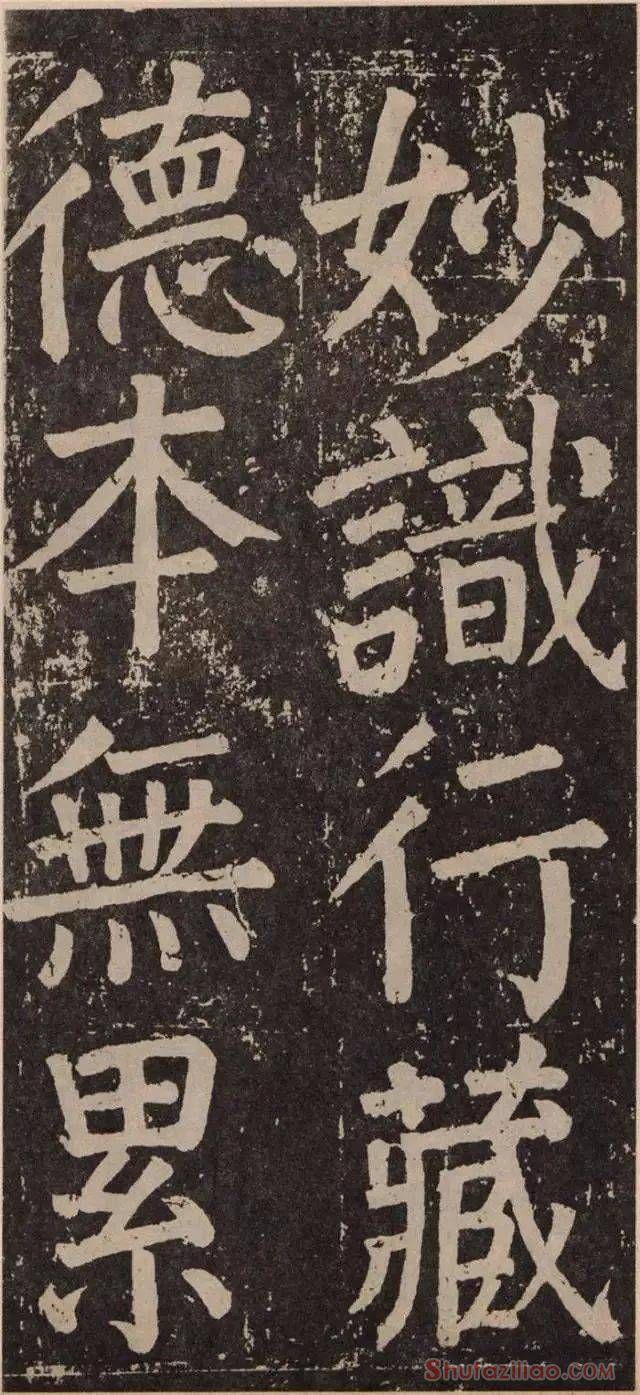 妙識行藏
德本無累
Shufaziliao.com